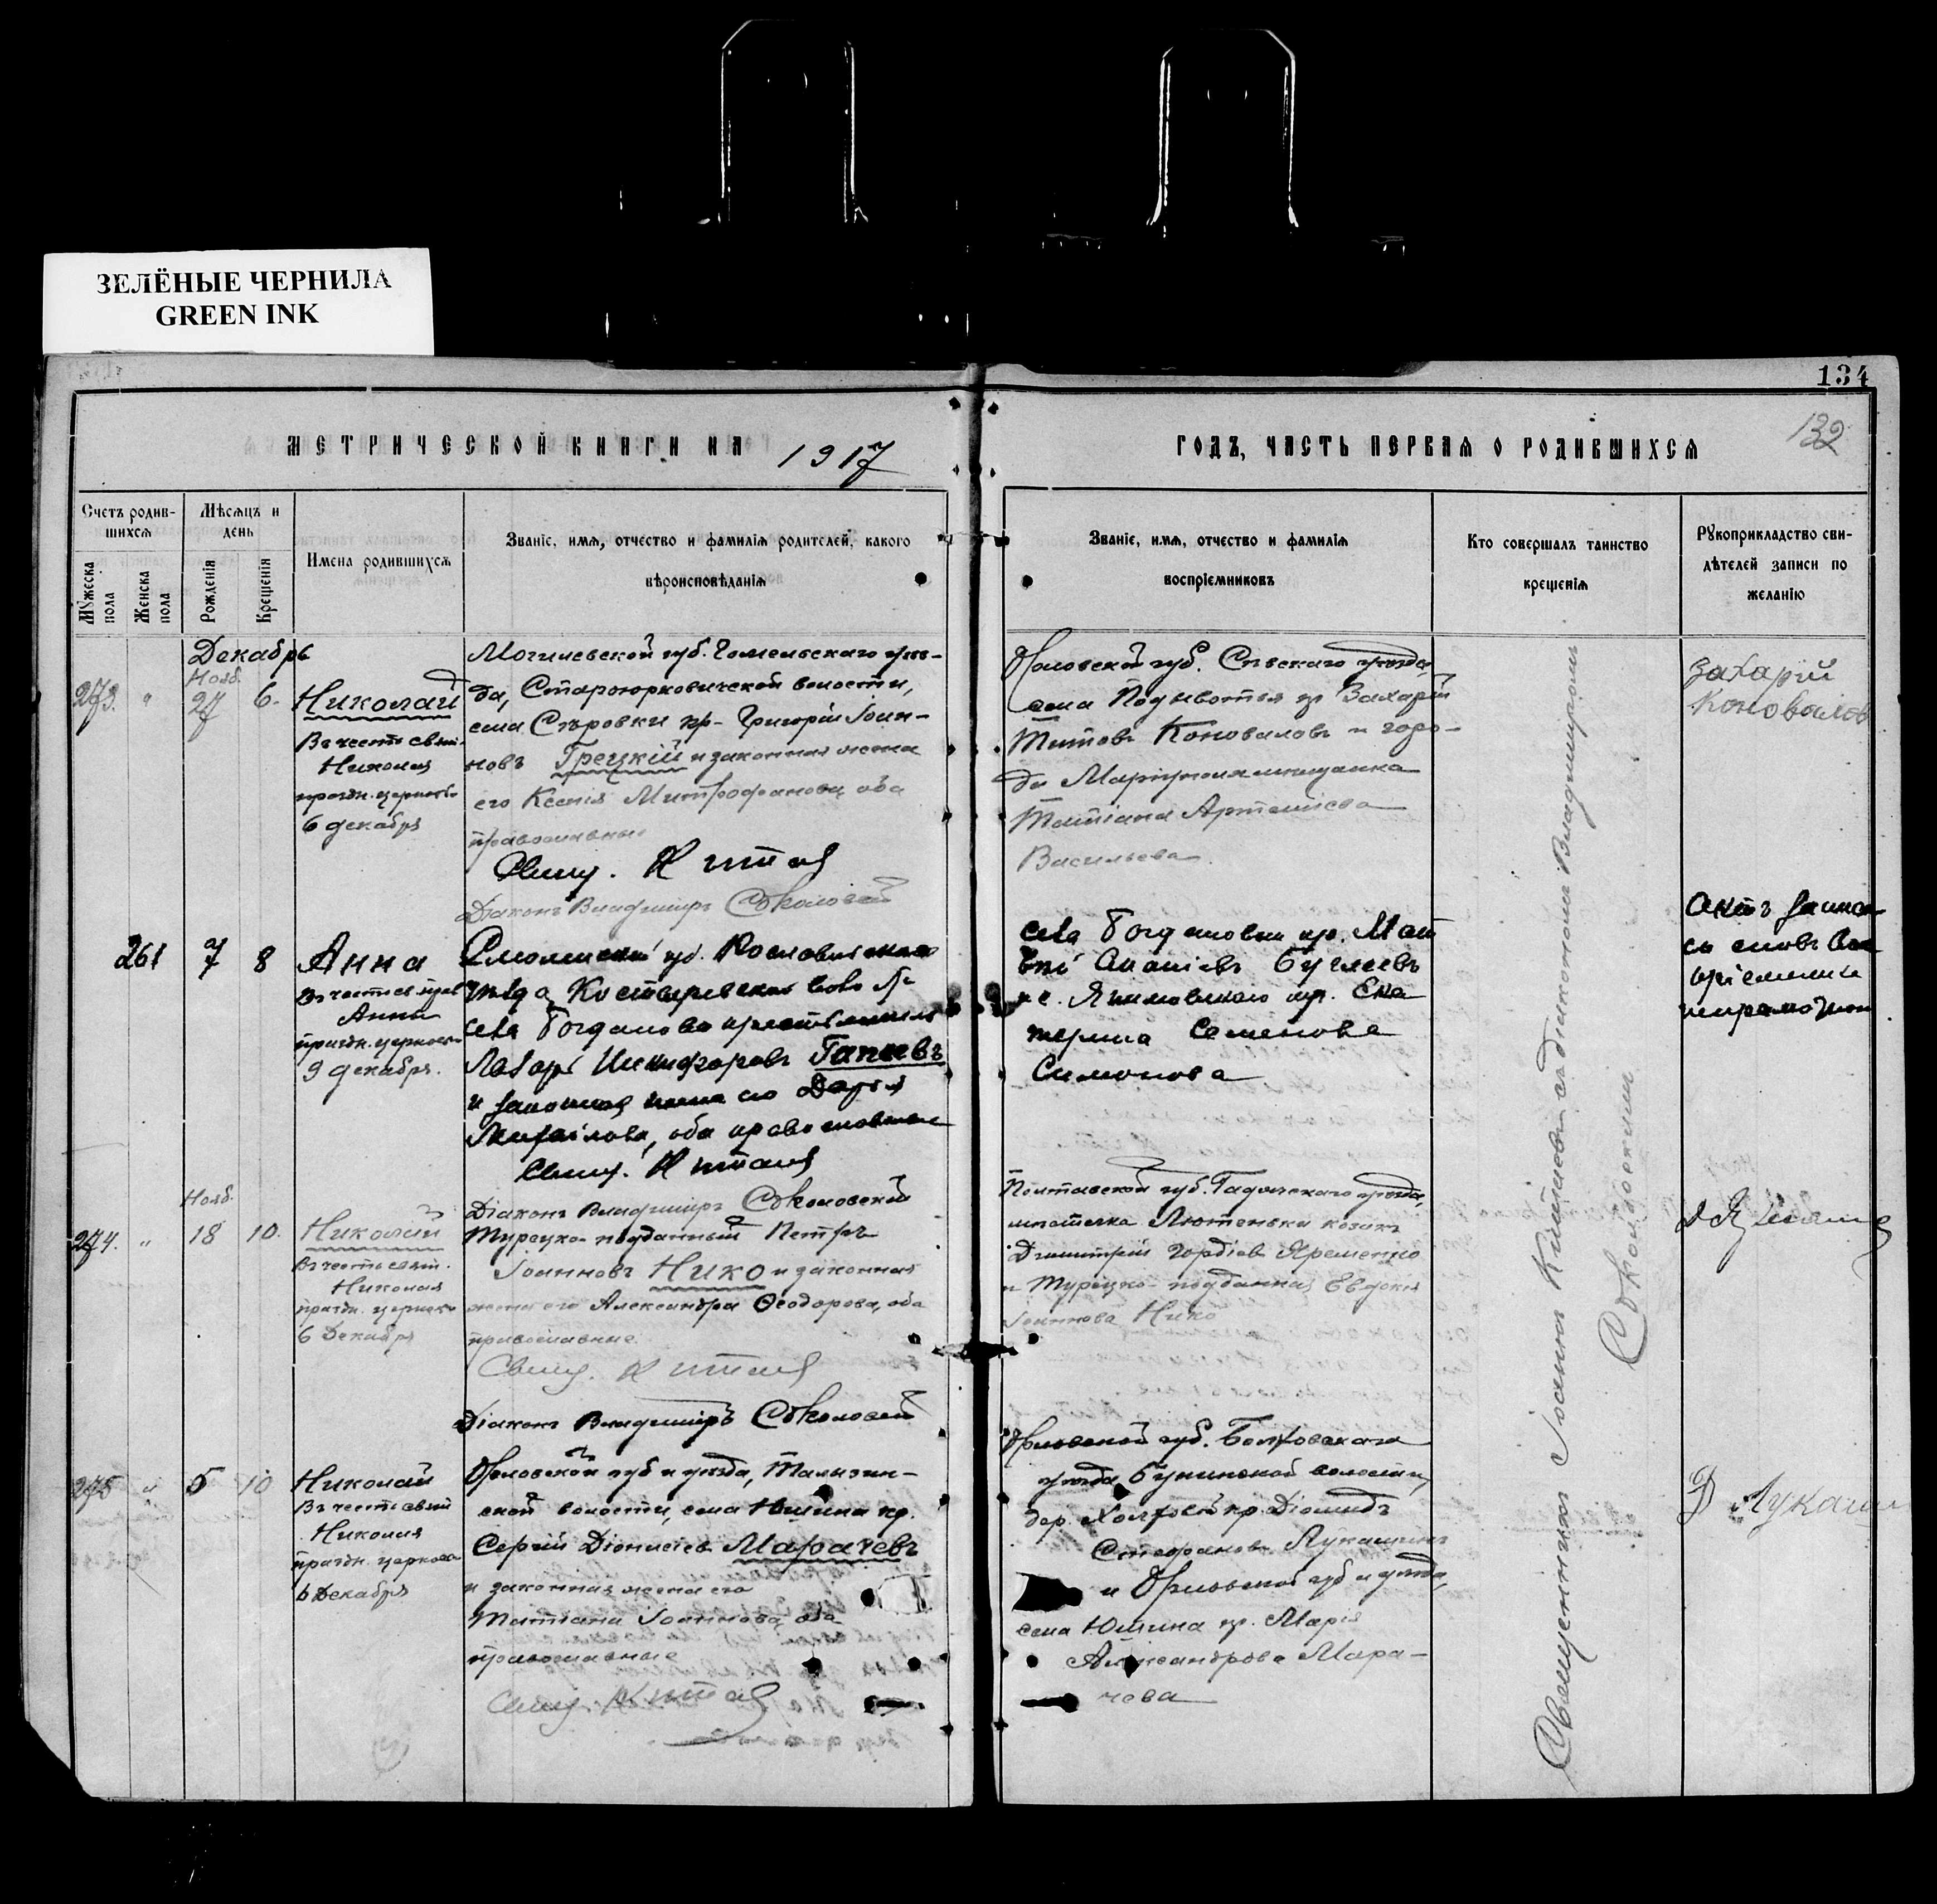 ЗЕЛЁНЫЕ ЧЕРНИЛА
GREEN INK
134
132
МЕТРИЧЕСКОЙ КНИГИ НА 1917
ГОДЪ, ЧАСТЬ ПЕРВАЯ О РОДИВШИХСЯ
Счетъ родив-
шихся
Мужеска пола
Женска пола
Мѣсяцъ и
день
Рожденія
Крещенія
Имена родившихся
Званіе, имя, отчество и фамилія родителей, какого
вѣроисповѣданія
Званіе, имя, отчество и фамилія
воспріемниковъ
Кто совершалъ таинство
крещенія
Рукоприкладство сви-
дѣтелей записи по
желанію
Декабрь
Нояб.
273. " 27 6.
Николай
Въ честь свят.
Николая
праздн. церковью
6 декабря
Могилевской губ. Гомельскаго уѣз-
да, Староюрковичской волости,
села Съровки кр. Григорій Іоан-
новъ Грецкій и законная жена
его Ксенія Митрофанова, оба
православные
Свящ. І. Китаев
Діаконъ Владиміръ Соколовскій
Орловской губ. Сѣвскаго уѣзда,
села Подывотья кр. Захарій
Титовъ Коноваловъ и горо-
да Маріуполя мѣщанка
Татіана Артеміева
Васильева.
Захарій
Коновалов
261 7 8
Анна
Въ честь св. прав.
Анны
праздн. церковью
9 декабря.
Смоленской губ. Рославльскаго
уѣзда, Костыревской вол.
села Богданово крестьянинъ
Никифоровъ Гапеевъ
и законная жена его Дарія
Михайлова, оба православные
Свящ. І. Китаев
Діаконъ Владиміръ Соколовскій
села Богдановки кр. Мат
Ананіевъ
кр. Ека
терина Семенова
Симонова
Нояб.
274. " 18 10.
Николай
Въ честь свят.
Николая
праздн. церковью
6 Декабря
Турецко-подданный Петръ
Іоанновъ Нико и законная
жена его Александра Ѳеодорова, оба
православные.
Свящ. І. Китаев
Діаконъ Владиміръ Соколовскій
Полтавской губ. Гадячскаго уѣзда,
мѣстечка Лютеньки козакъ
Димитрій Гордіевъ Яременко
и Турецко-подданная Евдокія
Іоаннова Нико
275 " 5 10
Николай
Въ честь свят.
Николая
праздн. церковью
6 Декабря
Орловской губ. и уѣзда, Тализин-
ской волости, села Юшина кр.
Сергій Діонисіевъ Марачевъ
и законная жена его
Татіана Іоаннова, оба
православные
Свящ. І. Китаев
Орловской губ. Болховскаго
уѣзда Бунинской волости,
дер. кр. Діомидъ
Стефановъ Лукашинъ
и Орловской губ. и уѣзда,
села Юшина кр. Марія
Александрова Мара-
чева
Д Лукаши
Священникъ Іоаннъ Китаевъ съ діакономъ Владиміромъ
Соколовскимъ